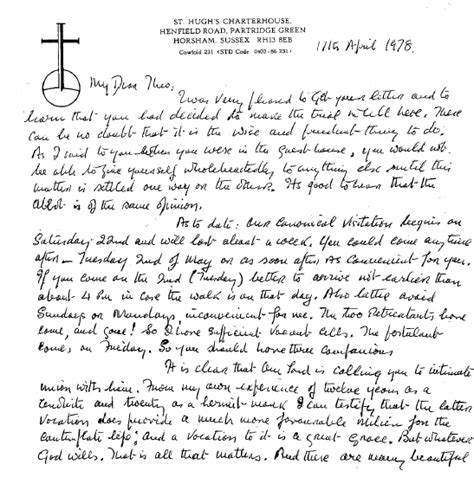 ST. HUGH'S CHARTERHOUSE,
HENFIELD ROAD, PARTRIDGE GREEN
HORSHAM, SUSSEX RH13 8EB
Cowfold 231 (STD Code 0403-86 231)
17th April 1978.
My Dear Theo,
I was very pleased to get your letter and to
learn that you had decided to make the trial in cell here. There
can be no doubt that it is the wise and prudent thing to do.
As I said to you when you were in the guest house, you would not
be able to give yourself wholeheartedly to anything else until this
matter is settled one way or the other. It's good to hear that the
Abbot is of the same opinion.
As to date: our canonical Visitation begins on
Saturday 22nd and will last about a week. You could come anytime
after – Tuesday 2nd of May or as soon after as convenient for you.
If you come on the 2nd (Tuesday) better to arrive not earlier than
about 4 PM in case the walk is on that day. Also better avoid
Sundays or Mondays, inconvenient for me. The two Retreatants have
come, and gone! So I have sufficient vacant cells. The postulant
comes on Friday. So you should have three companions
It is clear that Our Lord is calling you to intimate
union with him. From my own experience of twelve years as a
cenobite and twenty as a hermit-monk I can testify that the latter
vocation does provide a much more favourable milieu for the
contemplative life; and a vocation to it is a great grace. But whatever
God wills. That is all that matters. And there are many beautiful